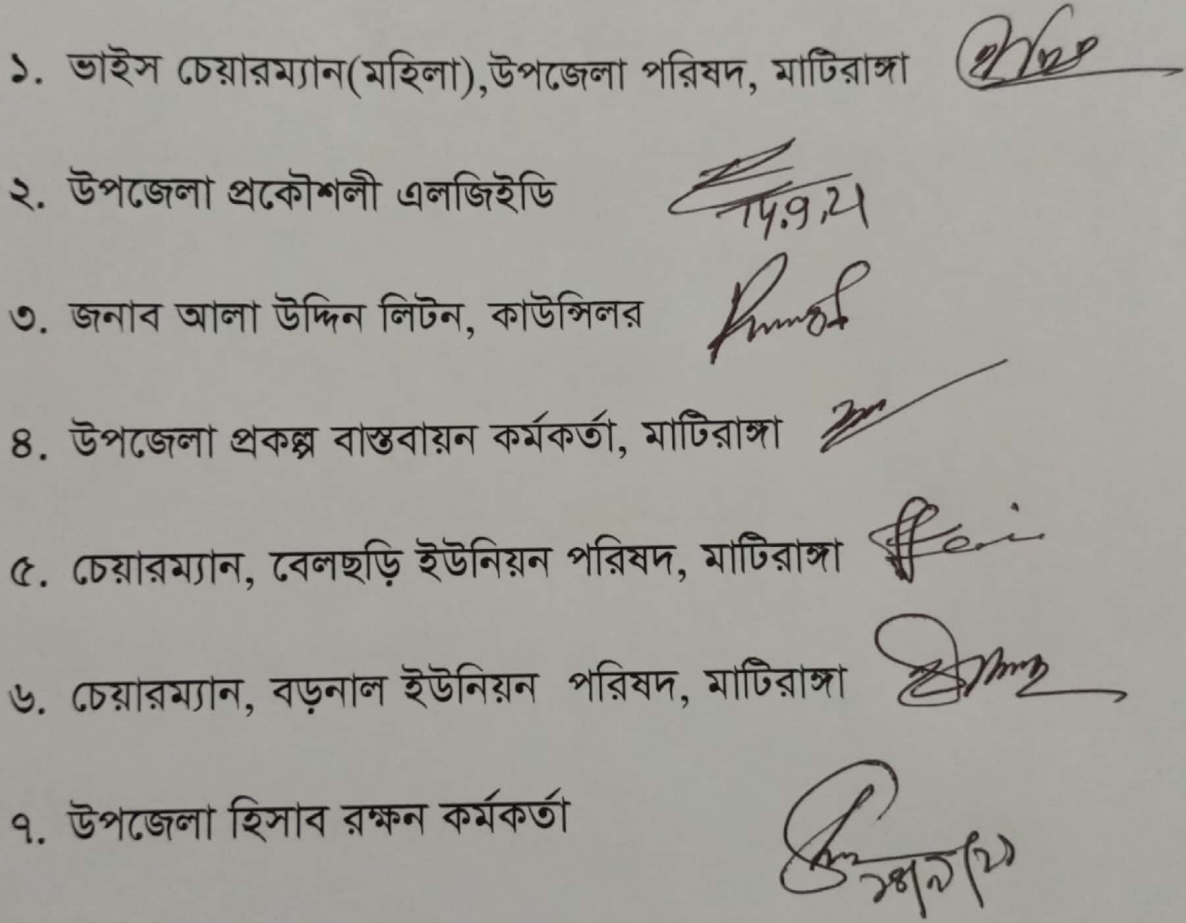 ১. ভাইস চেয়ারম্যান(মহিলা),উপজেলা পরিষদ, মাটিরাঙ্গা
২. উপজেলা প্রকৌশলী এলজিইডি
14.9.21
৩. জনাব আলা উদ্দিন লিটন, কাউন্সিলর
৪. উপজেলা প্রকল্প বাস্তবায়ন কর্মকর্তা, মাটিরাঙ্গা
৫. চেয়ারম্যান, বেলছড়ি ইউনিয়ন পরিষদ, মাটিরাঙ্গা
৬. চেয়ারম্যান, বড়নাল ইউনিয়ন পরিষদ, মাটিরাঙ্গা
৭. উপজেলা হিসাব রক্ষন কর্মকর্তা